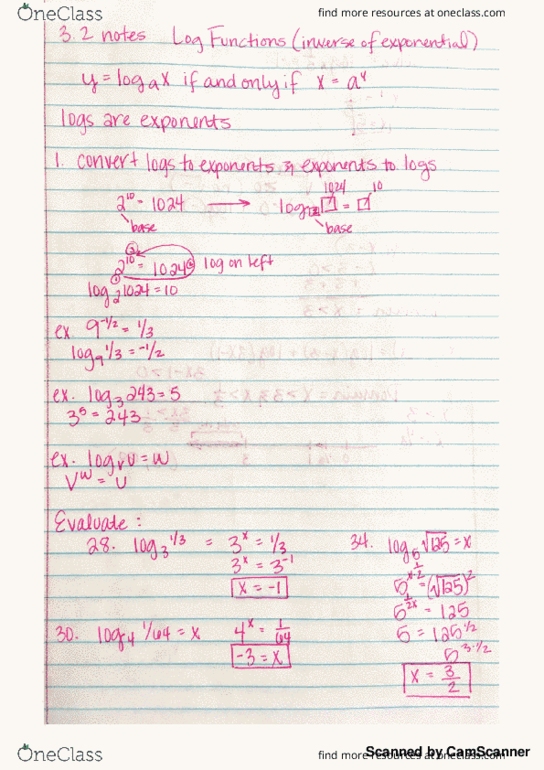 OneClass
find more resources at oneclass.com
3.2 notes Log Functions (inverse of exponential)
y = logₐx if and only if x = aʸ
logs are exponents
1. convert logs to exponents & exponents to logs
2¹⁰ = 1024 → log₂ □ = □ 1024 10
base base
2¹⁰ = 1024 log on left
log₂1024 = 10
ex. 9^-1/2 = 1/3
log₉ 1/3 = -1/2
ex. log₃ 243 = 5
3⁵ = 243
ex. logᵥU = W
V^W = U
Evaluate:
28. log₃ 1/3 = 3ˣ = 1/3
3ˣ = 3⁻¹
x = -1
30. log₄ 1/64 = x 4ˣ = 1/64
-3 = x
34. log₅ √125 = x
5^x·2 = (√125)²
5^2x = 125
5 = 125^1/2
5^3·1/2
x = 3/2
OneClass
find more resources at oneclass.com
Scanned by CamScanner